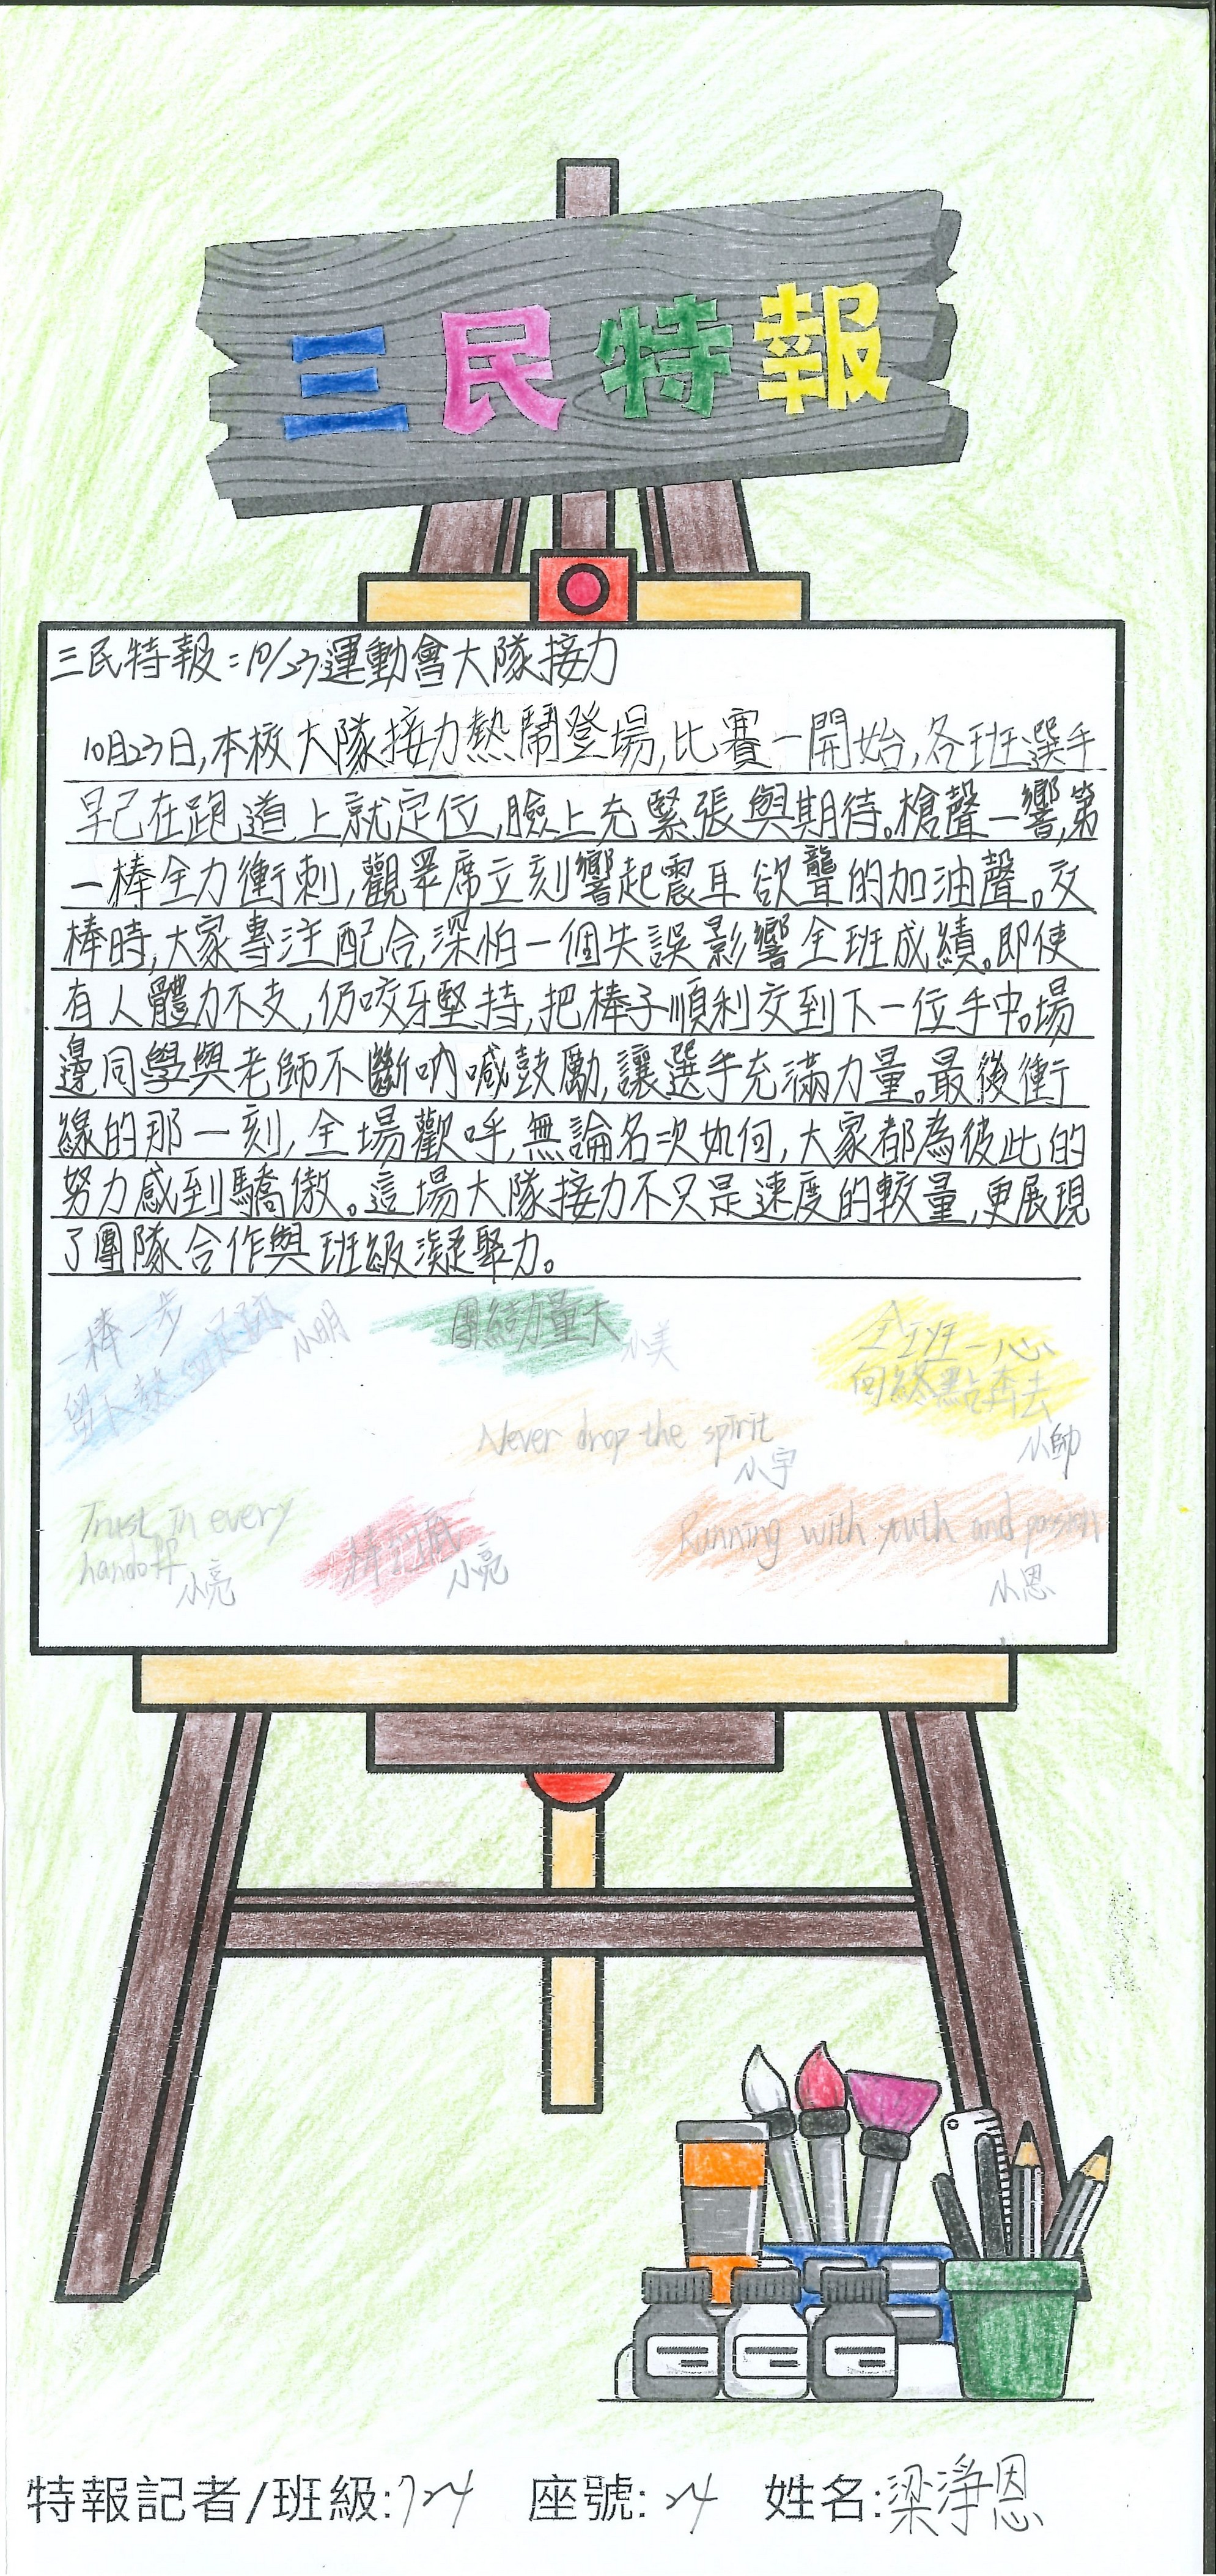 三民特報
三民特報:10/23運動會大隊接力
10月23日,本校大隊接力熱鬧登場,比賽一開始,各班選手
早已在跑道上就定位,臉上充緊張與期待。槍聲一響,第
一棒全力衝刺,觀眾席立刻響起震耳欲聾的加油聲。交
棒時,大家專注配合,深怕一個失誤影響全班成績。即使
有人體力不支,仍咬牙堅持,把棒子順利交到下一位手中。場
邊同學與老師不斷吶喊鼓勵,讓選手充滿力量。最後衝
線的那一刻,全場歡呼,無論名次如何,大家都為彼此的
努力感到驕傲。這場大隊接力不只是速度的較量,更展現
了團隊合作與班級凝聚力。
一棒一步 足跡
留下熱血
小明
團結力量大
小美
全班一心
向終點奔去
小帥
Never drop the spirit
小宇
Trust in every
handoff
小亮
小亮
Running with youth and passion
小恩
特報記者/班級:724 座號:24 姓名:梁淨恩